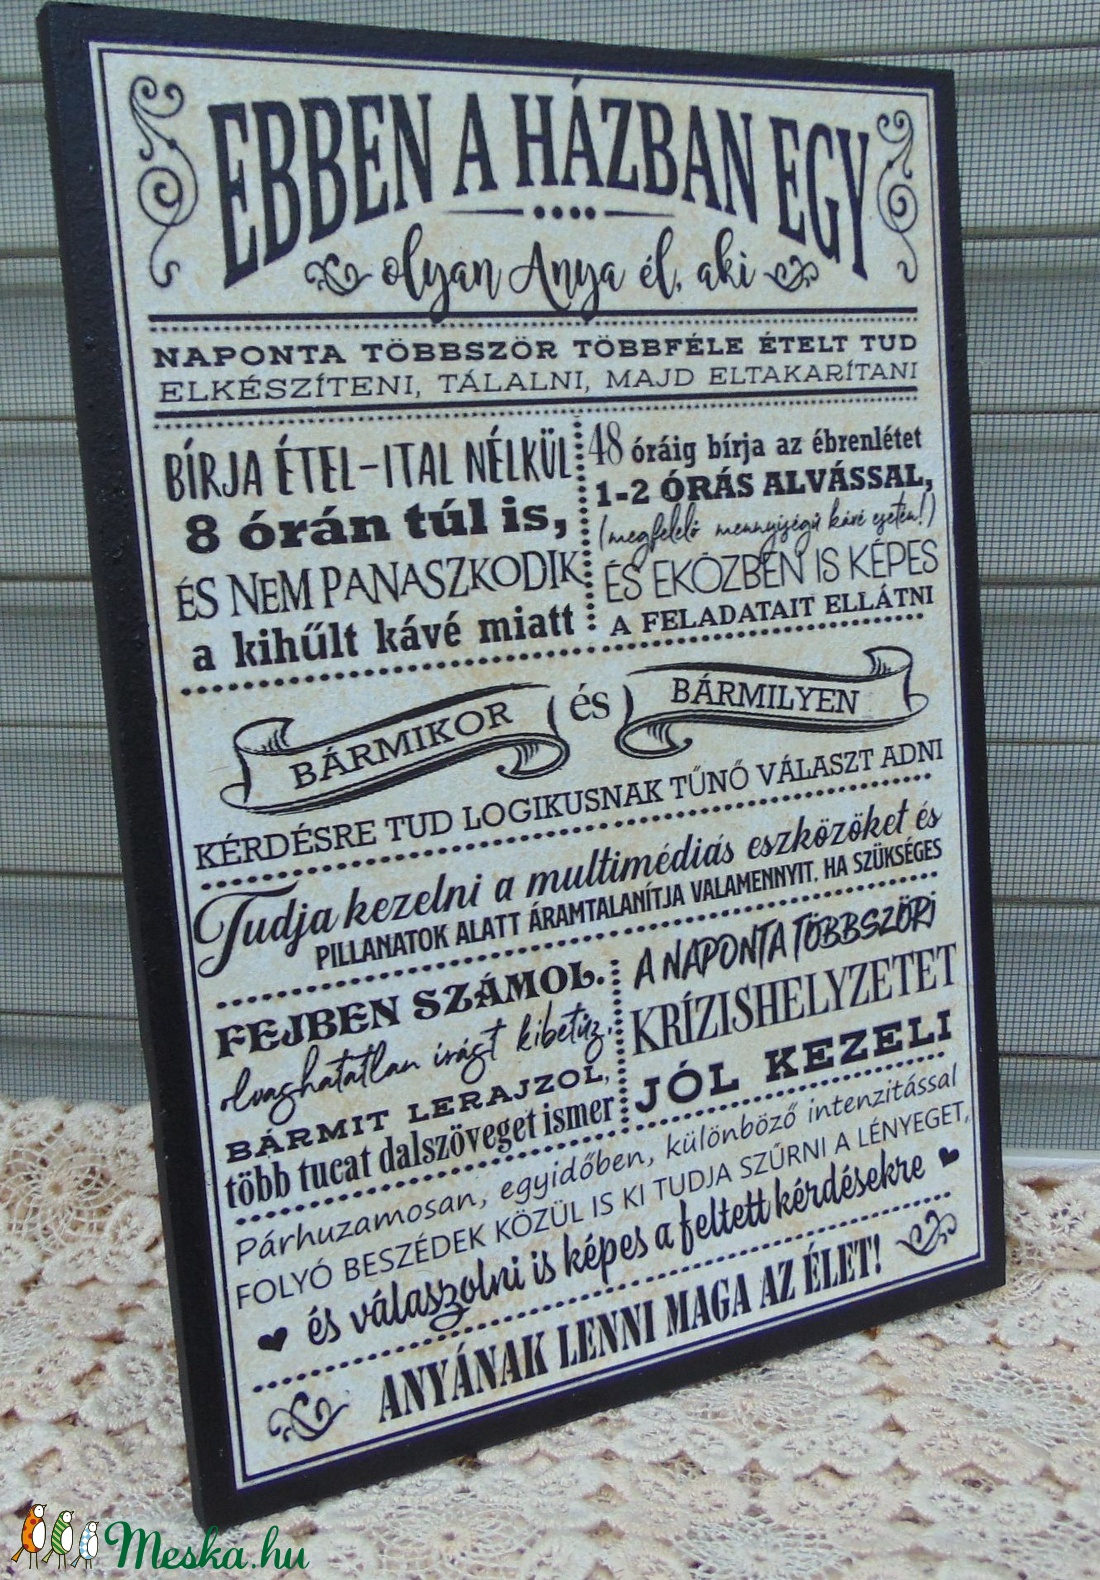 EBBEN A HÁZBAN EGY
olyan Anya él, aki
NAPONTA TÖBBSZÖR TÖBBFÉLE ÉTELT TUD
ELKÉSZÍTENI, TÁLALNI, MAJD ELTAKARÍTANI
BÍRJA ÉTEL-ITAL NÉLKÜL
8 órán túl is,
ÉS NEM PANASZKODIK
a kihűlt kávé miatt
48 óráig bírja az ébrenlétet
1-2 ÓRÁS ALVÁSSAL,
(megfelelő mennyiségű kávé esetén!)
ÉS EKÖZBEN IS KÉPES
A FELADATAIT ELLÁTNI
BÁRMIKOR és BÁRMILYEN
KÉRDÉSRE TUD LOGIKUSNAK TŰNŐ VÁLASZT ADNI
Tudja kezelni a multimédiás eszközöket és
PILLANATOK ALATT ÁRAMTALANÍTJA VALAMENNYIT, HA SZÜKSÉGES
FEJBEN SZÁMOL,
olvashatatlan írást kibetűz,
BÁRMIT LERAJZOL,
több tucat dalszöveget ismer
A NAPONTA TÖBBSZÖRI
KRÍZISHELYZETET
JÓL KEZELI
Párhuzamosan, egyidőben, különböző intenzitással
FOLYÓ BESZÉDEK KÖZÜL IS KI TUDJA SZŰRNI A LÉNYEGET,
és válaszolni is képes a feltett kérdésekre
ANYÁNAK LENNI MAGA AZ ÉLET!
Meska.hu